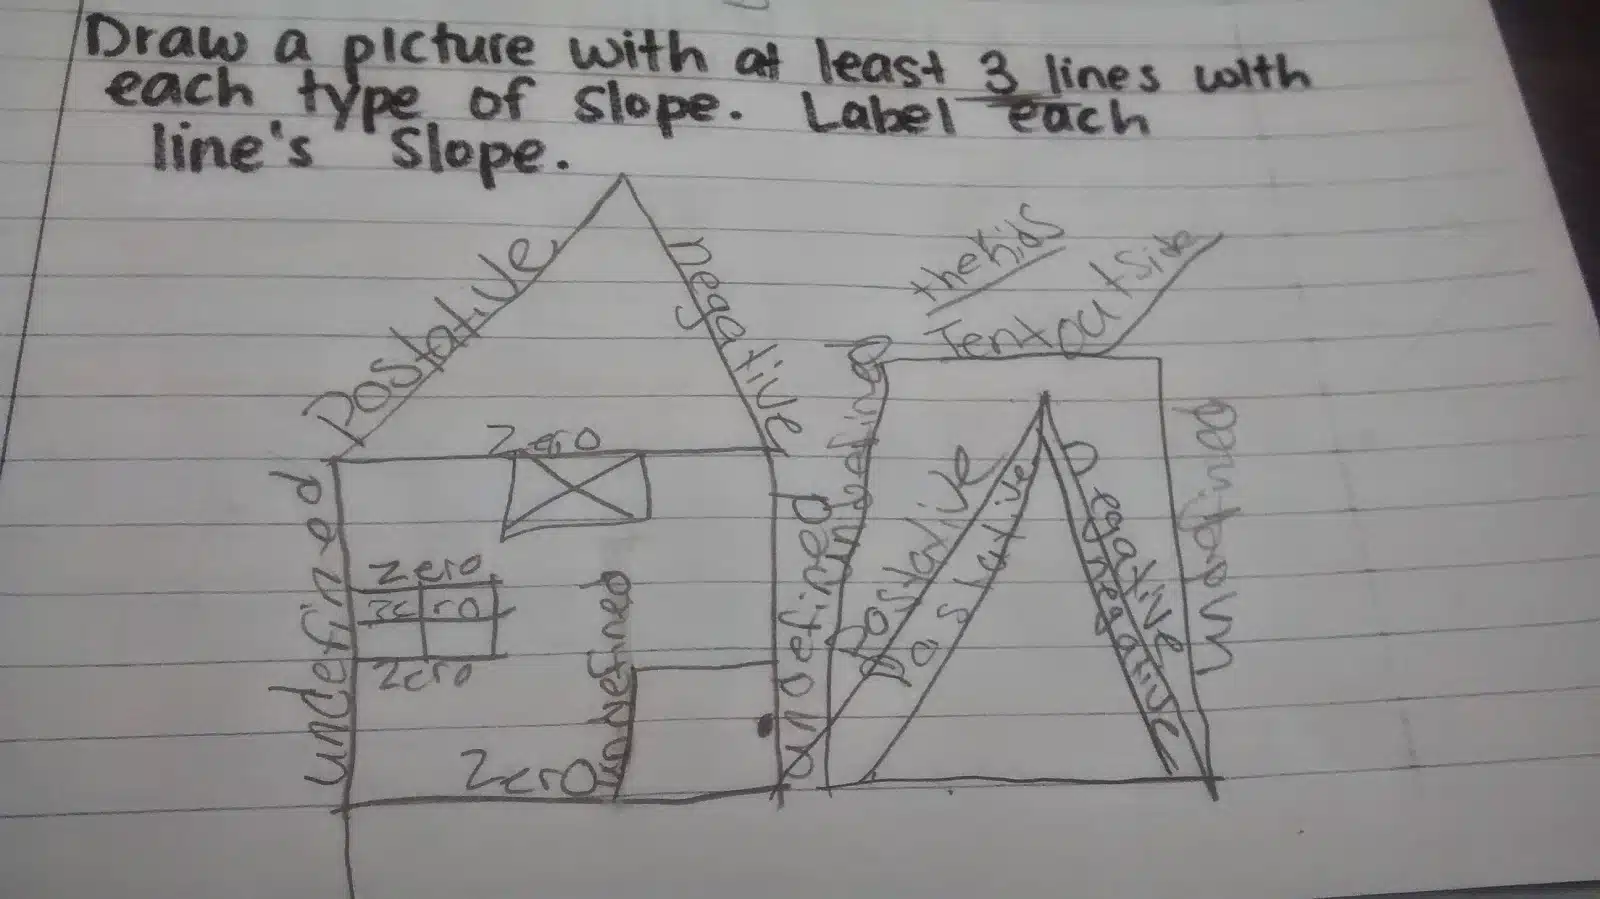 Draw a picture with at least 3 lines with
each type of slope. Label each
line's slope.
Postative
negative
the kids
Tent outside
Zero
undefined
zero
zero
zero
undefined
zero
undefined
undefined
Postative
Postative
negative
negative
undefined